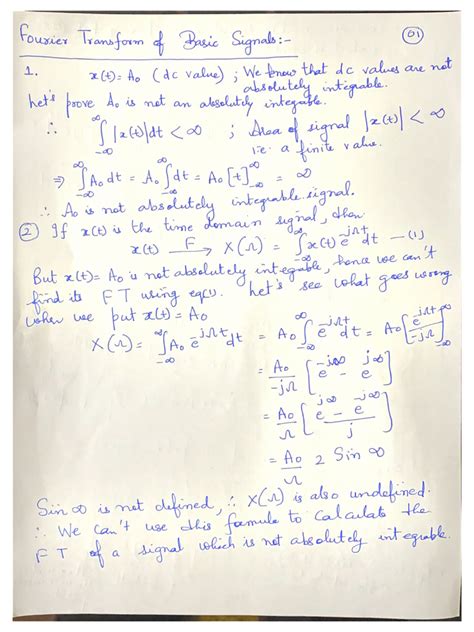 Fourier Transform of Basic Signals:-
01
1. x(t) = A₀ (dc value) ; We know that dc values are not
absolutely integrable.
Let's prove A₀ is not an absolutely integrable.
∴ ∫_{-∞}^{∞} |x(t)| dt < ∞ ; Area of signal |x(t)| < ∞
i.e. a finite value.
⇒ ∫_{-∞}^{∞} A₀ dt = A₀ ∫_{-∞}^{∞} dt = A₀ [t]_{-∞}^{∞} = ∞
∴ A₀ is not absolutely integrable signal.
② If x(t) is the time domain signal, then
x(t) —F→ X(Ω) = ∫_{-∞}^{∞} x(t) e^{-jΩt} dt — (1)
But x(t) = A₀ is not absolutely integrable, hence we can't
find its FT using eq(1). Let's see what goes wrong
when we put x(t) = A₀
X(Ω) = ∫_{-∞}^{∞} A₀ e^{-jΩt} dt = A₀ ∫_{-∞}^{∞} e^{-jΩt} dt = A₀ [e^{-jΩt}/-jΩ]_{-∞}^{∞}
= A₀/-jΩ [e^{-j∞} - e^{j∞}]
= A₀/Ω [(e^{j∞} - e^{-j∞})/j]
= A₀/Ω 2 Sin ∞
Sin ∞ is not defined, ∴ X(Ω) is also undefined.
∴ We can't use this formula to calculate the
FT of a signal which is not absolutely integrable.